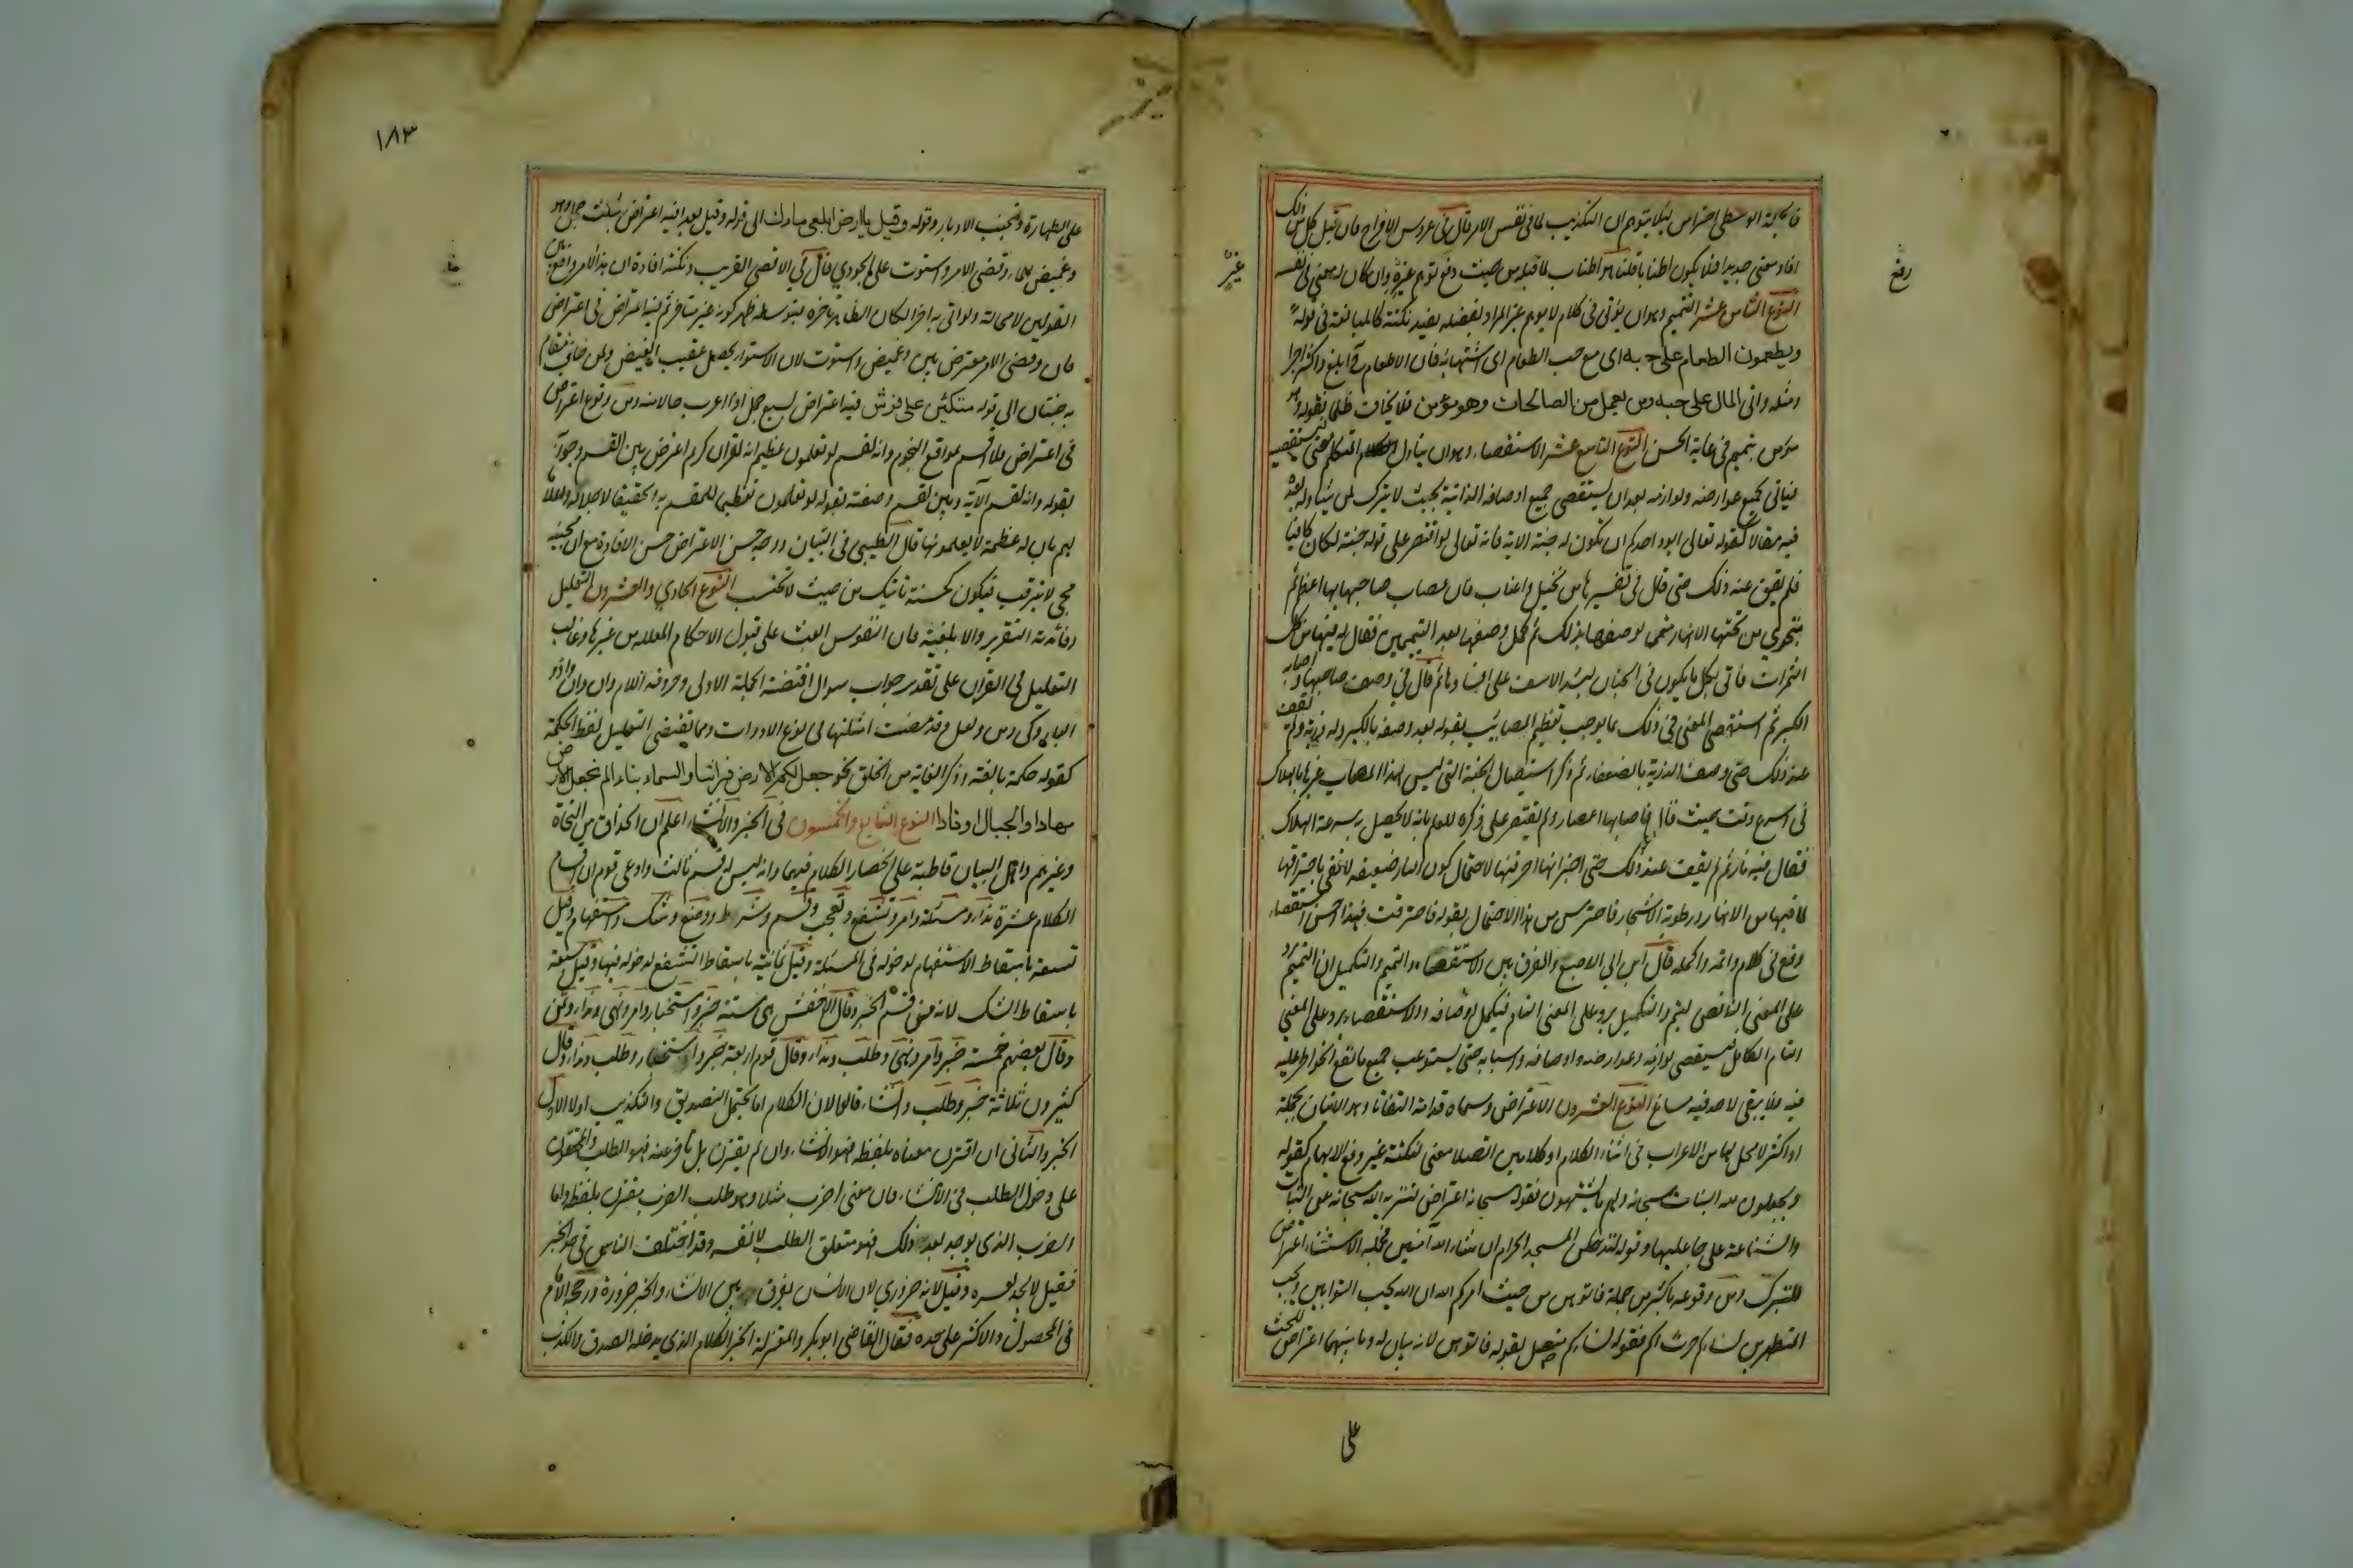 فالجملة الوسطى احتراس لئلا يتوهم ان التكذيب لما فى نفس الامر قال فى عروس الافراح فان قيل كل من ذلك
افاد معنى جديدا فلا يكون اطنابا قلنا هو اطناب لما قبله من حيث دفع توهم غيره وان كان له معنى فى نفسه
النوع الثامن عشر التتميم وهو ان يؤتى فى كلام لا يوهم غير المراد بفضلة يفيد نكتة كالمبالغة فى قوله
ويطعمون الطعام على حبه اى مع حب الطعام اى اشتهائه فان الاطعام ح ابلغ واكثر اجرا
ومثله واتى المال على حبه ومن يعمل من الصالحات وهو مؤمن فلا يخاف ظلما فقوله وهو
مؤمن تتميم فى غاية الحسن النوع التاسع عشر الاستقصاء وهو ان يتناول المتكلم معنى فيستقصيه
فياتى بجميع عوارضه ولوازمه بعد ان يستقصى جميع اوصافه الذاتية بحيث لا يترك لمن يتناوله بعده
فيه مقالا كقوله تعالى ايود احدكم ان تكون له جنة الاية فانه تعالى لو اقتصر على قوله جنة لكان كافيا
فلم يقف عند ذلك حتى قال فى تفسيرها من نخيل واعناب فان مصاب صاحبها بها اعظم ثم
تجرى من تحتها الانهار متمما لوصفها بذلك ثم كمل وصفها بعد التتميمين فقال له فيها من كل
الثمرات فاتى بكل ما يكون فى الجنان ليشتد الاسف على افسادها ثم قال فى وصف صاحبها واصابه
الكبر ثم استقصى المعنى فى ذلك بما يوجب تعظيم المصاب بقوله بعد وصفه بالكبر وله ذرية ولم يقف
عند ذلك حتى وصف الذرية بالضعفاء ثم ذكر استيصال الجنة التى ليس لهذا المصاب غيرها بالهلاك
فى اسرع وقت حيث قال فاصابها اعصار ولم يقتصر على ذكره للعلم بانه لا يحصل به سرعة الهلاك
فقال فيه نار ثم لم يقف عند ذلك حتى اخبر انها احرقتها لاحتمال كون النار ضعيفة لا تفى باحتراقها
لما فيها من الانهار ورطوبة الاشجار فاحترس من هذا الاحتمال بقوله فاحترقت فهذا احسن استقصاء
وقع فى كلام واتمه واكمله قال ابن ابى الاصبع والفرق بين الاستقصاء والتتميم والتكميل ان التتميم يرد
على المعنى الناقص ليتم والتكميل يرد على المعنى التام فيكمل اوصافه والاستقصاء يرد على المعنى
التام الكامل فيستقصى لوازمه وعوارضه واوصافه واسبابه حتى يستوعب جميع ما تقع الخواطر عليه
فيه فلا يبقى لاحد فيه مساغ النوع العشرون الاعتراض وسماه قدامة التفاتا وهو الاتيان بجملة
او اكثر لا محل لها من الاعراب فى اثناء الكلام او كلامين اتصلا معنى لنكتة غير دفع الايهام كقوله
ويجعلون لله البنات سبحانه ولهم ما يشتهون فقوله سبحانه اعتراض لتنزيه الله سبحانه عن البنات
والشناعة على جاعليها وقوله لتدخلن المسجد الحرام ان شاء الله آمنين فجملة الاستثناء اعتراض
للتبرك ومن وقوعه باكثر من جملة فاتوهن من حيث امركم الله ان الله يحب التوابين ويحب
المتطهرين نساءكم حرث لكم فقوله نساءكم متصل بقوله فاتوهن لانه بيان له وما بينهما اعتراض للحث
على
رفع
غيره
١٨٣
على الطهارة وتجنب الادبار وقوله وقيل يا ارض ابلعى ماءك الى قوله وقيل بعدا فيه اعتراض بثلث جمل وهو
وغيض الماء وقضى الامر واستوت على الجودي قال فى الاقصى القريب ونكتته افادة ان هذا الامر واقع بين
القولين لا محالة ولو اتى به اخرا لكان الظاهر تاخره فبتوسطه ظهر كونه غير متاخر ثم فيه اعتراض فى اعتراض
فان وقضى الامر معترض بين وغيض واستوت لان الاستواء يحصل عقيب الغيض ولمن خاف مقام
ربه جنتان الى قوله متكئين على فرش فيه اعتراض لسبع جمل اذا اعرب حالا منه ومن وقوع اعتراض
فى اعتراض فلا اقسم بمواقع النجوم وانه لقسم لو تعلمون عظيم انه لقران كريم اعترض بين القسم وجوابه
بقوله وانه لقسم الاية وبين لقسم وصفته بقوله لو تعلمون تعظيما للمقسم به وتحقيقا لاجلاله واعلاما
لهم بان له عظمة لا يعلمونها قال الطيبى فى التبيان ووجه حسن الاعتراض حسن الافادة مع ان مجيئه
مجى ما لا يترقب فيكون كحسنة تاتيك من حيث لا تحتسب النوع الحادي والعشرون التعليل
وفائدته التقرير والابلغية فان النفوس ابعث على قبول الاحكام المعللة من غيرها وغالب
التعليل فى القران على تقدير جواب سوال اقتضته الجملة الاولى وحروفه اللام وان وان واذ و
الباء وكى ومن ولعل وقد مضت امثلتها فى نوع الادوات ومما يقتضى التعليل لفظ الحكمة
كقوله حكمة بالغة وذكر الغاية من الخلق نحو جعل لكم الارض فراشا والسماء بناء الم نجعل الارض
مهادا والجبال اوتادا النوع السابع والخمسون فى الخبر والانشاء اعلم ان الحذاق من النحاة
وغيرهم واهل البيان قاطبة على انحصار الكلام فيهما وانه ليس له قسم ثالث وادعى قوم ان اقسام
الكلام عشرة نداء ومسئلة وامر وتشفع وتعجب وقسم وشرط ووضع وشك واستفهام وقيل
تسعة باسقاط الاستفهام لدخوله فى المسئلة وقيل ثمانية باسقاط التشفع لدخوله فيها وقيل سبعة
باسقاط الشك لانه من قسم الخبر وقال الاخفش هى ستة خبر واستخبار وامر ونهى ونداء وتمن
وقال بعضهم خمسة خبر وامر ونهى وطلب ونداء وقال قوم اربعة خبر واستخبار وطلب ونداء وقال
كثيرون ثلاثة خبر وطلب وانشاء قالوا لان الكلام اما يحتمل التصديق والتكذيب اولا الاول
الخبر والثانى ان اقترن معناه بلفظه فهو الانشاء وان لم يقترن بل تاخر عنه فهو الطلب والمحققون
على دخول الطلب فى الانشاء فان معنى اضرب مثلا وهو طلب الضرب مقترن بلفظه واما
الضرب الذى يوجد بعد ذلك فهو متعلق الطلب لا نفسه وقد اختلف الناس فى حد الخبر
فقيل لا يحد لعسره وقيل لانه ضروري لان الانسان يفرق بين الانشاء والخبر ضرورة ورجحه الامام
فى المحصول والاكثر على حده فقال القاضى ابو بكر والمعتزلة الخبر الكلام الذى يدخله الصدق والكذب